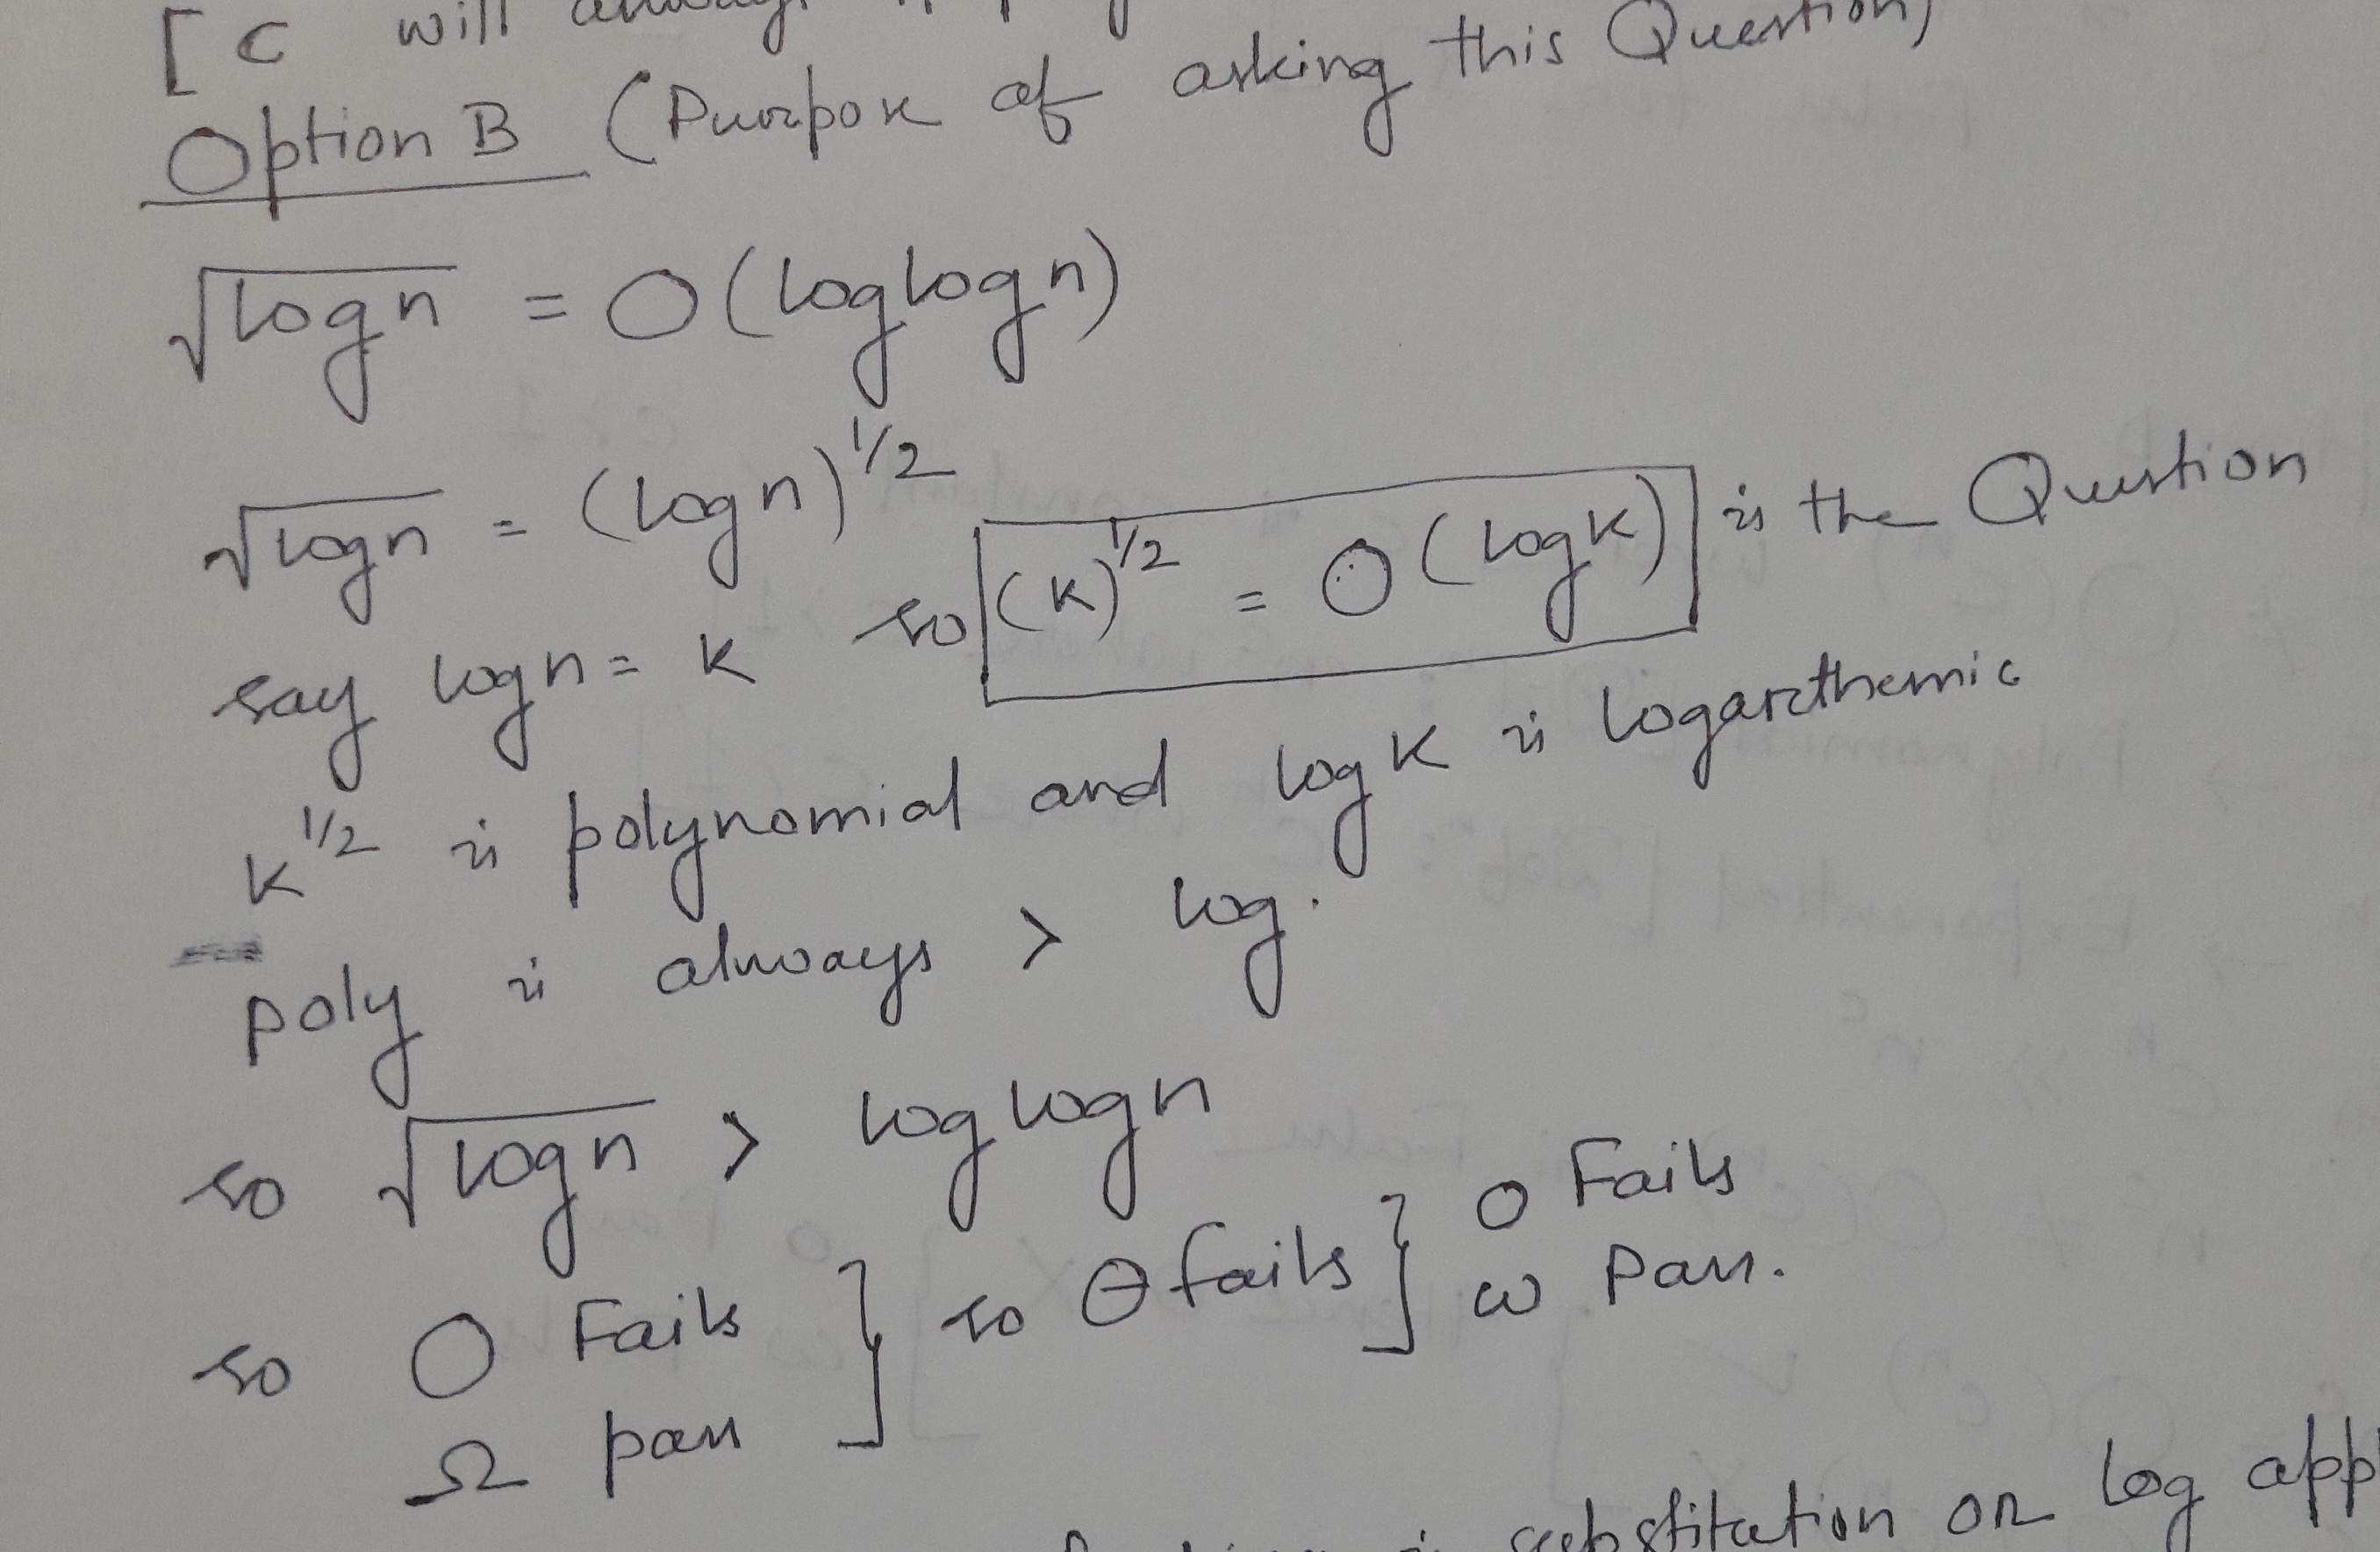 [ C will
Option B (Purpose of asking this Question)
√logn = O(loglogn)
√logn = (logn)^1/2
say logn = K so (K)^1/2 = O(logK) is the Question
K^1/2 is polynomial and logK is logarethemic
poly is always > log.
so √logn > loglogn
so O Fails } so θ fails } o Fails
Ω pass ω Pass.
substitution or log